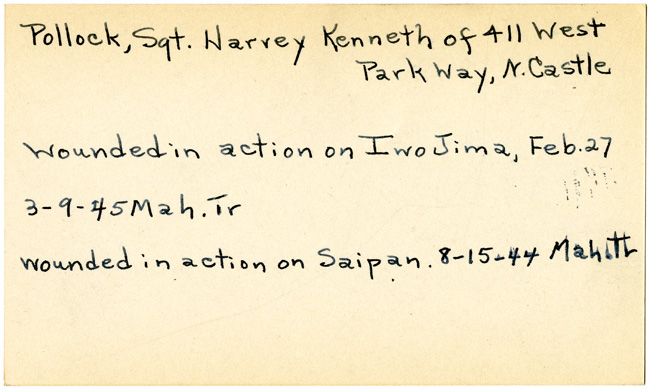 Pollock, Sgt. Harvey Kenneth of 411 West
Park Way, N. Castle
Wounded in action on Iwo Jima, Feb. 27
3-9-45 Mah. Tr
wounded in action on Saipan. 8-15-44 Mah. Tr